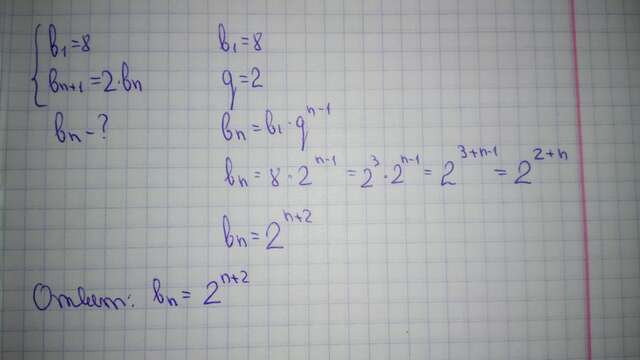 { b₁=8
bₙ₊₁=2·bₙ
bₙ-?
b₁=8
q=2
bₙ=b₁·qⁿ⁻¹
bₙ=8·2ⁿ⁻¹=2³·2ⁿ⁻¹=2³⁺ⁿ⁻¹=2²⁺ⁿ
bₙ=2ⁿ⁺²
Ответ: bₙ=2ⁿ⁺²